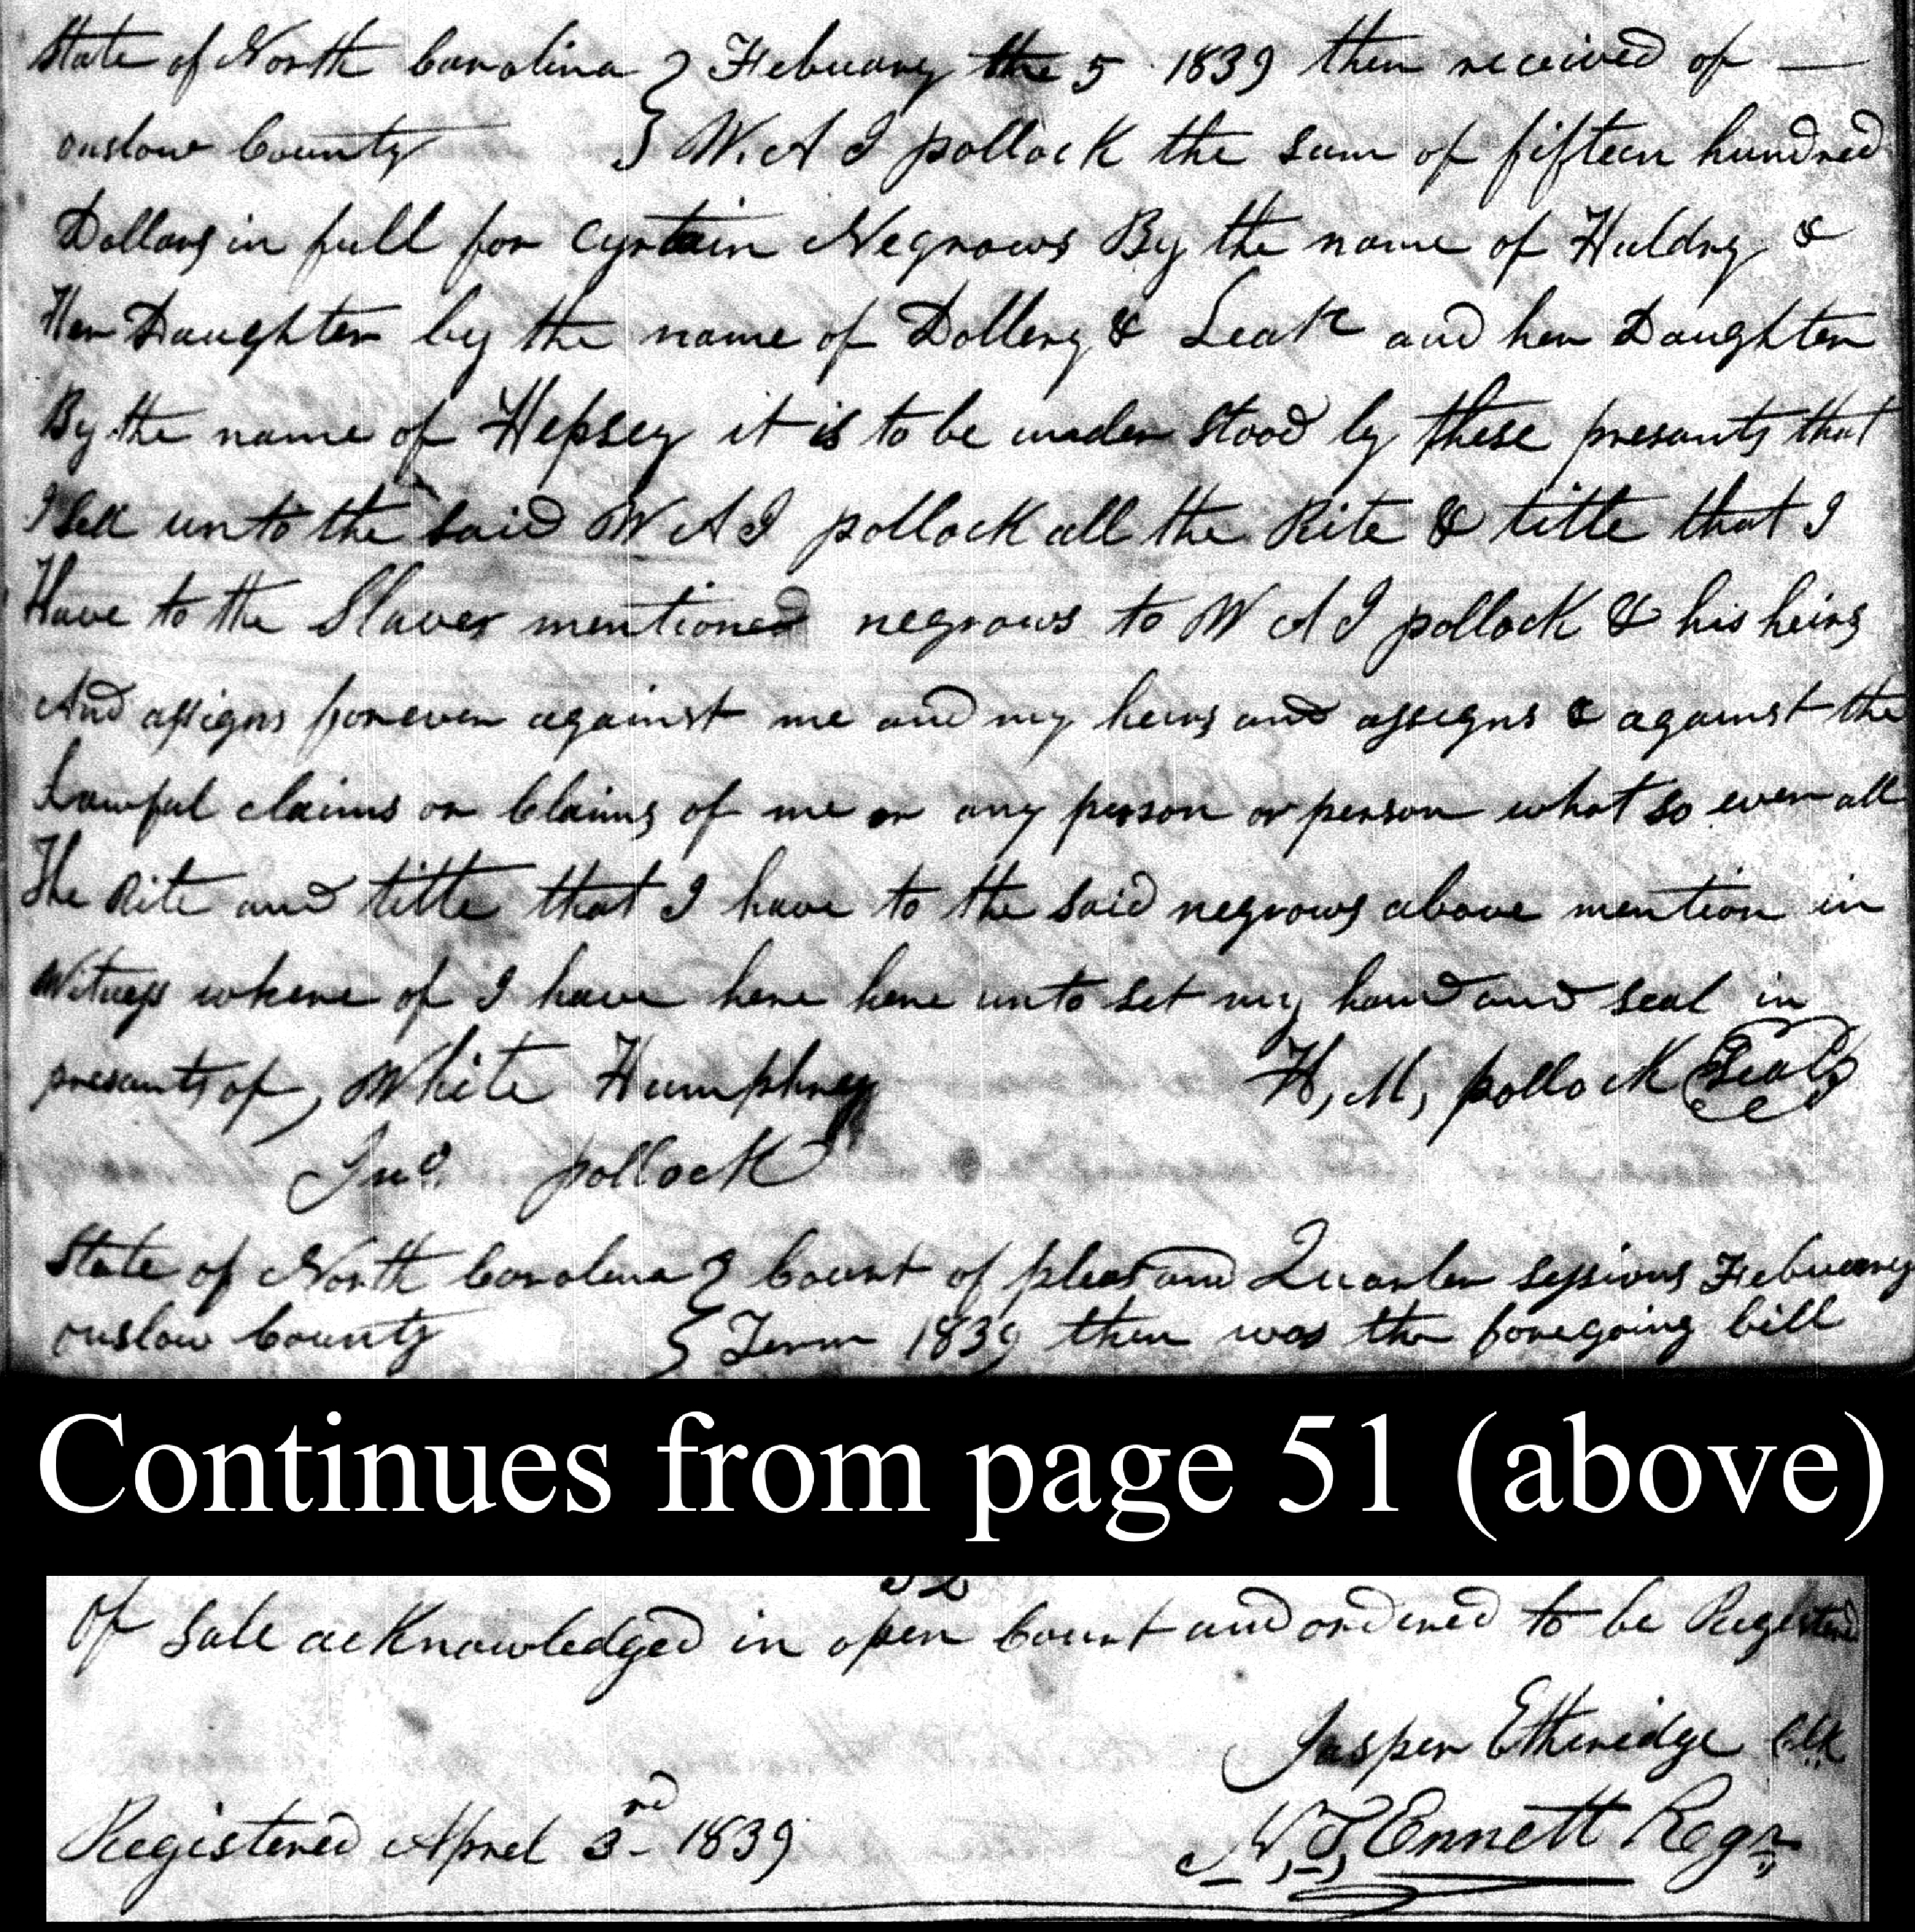 State of North Carolina } Febuary the 5 1839 then received of —
onslow County } W. A I pollock the sum of fifteen hundred
Dollars in full for cyrtain Negrows By the name of Huldry &
Her Daughter by the name of Dollery & Leak and her Daughter
By the name of Hepsey it is to be under stood by these presants that
I Sell unto the said W A I pollock all the Rite & title that I
Have to the Slaves mentioned negrows to W A I pollock & his heirs
And assigns forever against me and my heirs and assigns & against the
Lawful claims or Claims of me or any person or person what so ever all
The Rite and title that I have to the said negrows above mention in
Witness where of I have here here unto set my hand and seal in
presants of, White Humphrey H, M, pollock Seal
Jno. pollock
State of North Carolina } Court of pleas and Quarter sessions Febuary
onslow County } Term 1839 then was the foregoing bill
Continues from page 51 (above)
52
Of Sale acknowledged in open Court and ordered to be Registered
Jasper Etheridge Clk
Registered Aprel 3rd 1839 N, T, Ennett Regr